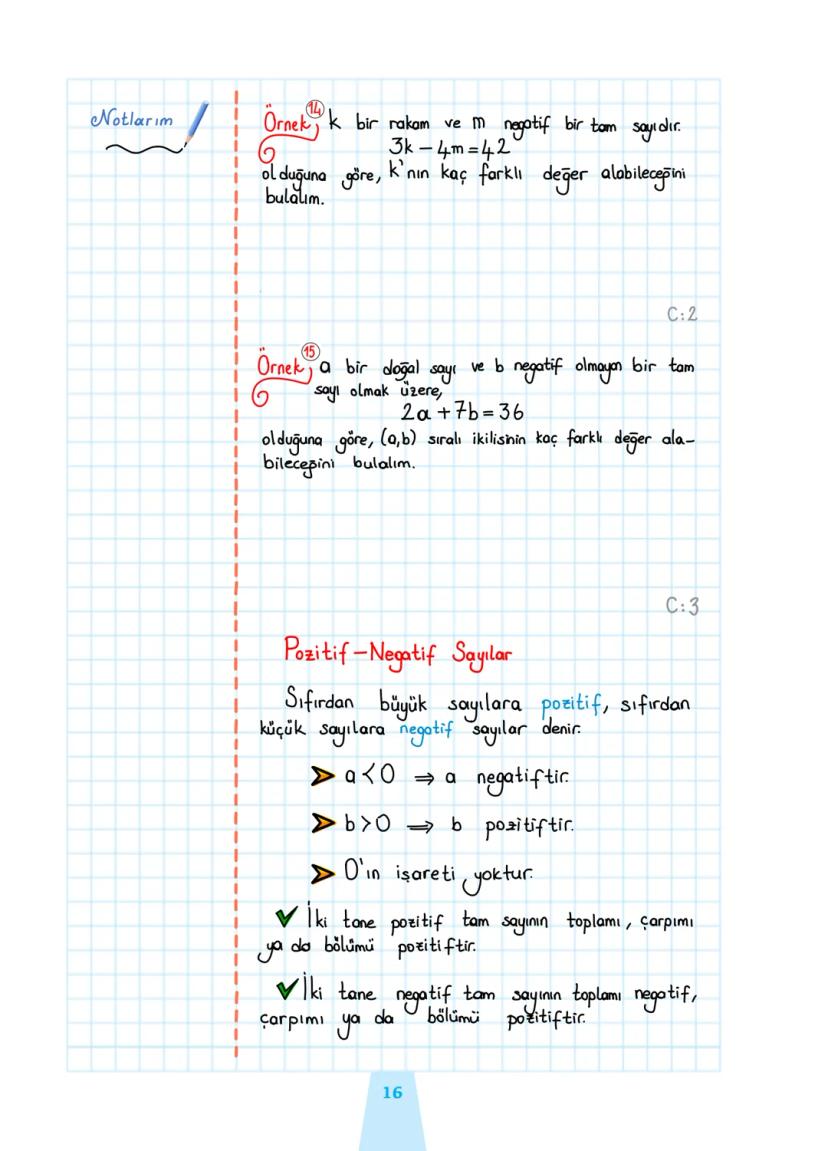 Notlarım
Örnek 14 k bir rakam ve m negatif bir tam sayıdır.
3k – 4m = 42
olduğuna göre, k'nın kaç farklı değer alabileceğini
bulalım.
C:2
Örnek 15 a bir doğal sayı ve b negatif olmayan bir tam
sayı olmak üzere,
2a + 7b = 36
olduğuna göre, (a,b) sıralı ikilisinin kaç farklı değer ala-
bileceğini bulalım.
C:3
Pozitif – Negatif Sayılar
Sıfırdan büyük sayılara pozitif, sıfırdan
küçük sayılara negatif sayılar denir.
➤ a < 0 ⇒ a negatiftir.
➤ b > 0 ⇒ b pozitiftir.
➤ 0'ın işareti yoktur.
✔ İki tane pozitif tam sayının toplamı, çarpımı
ya da bölümü pozitiftir.
✔ İki tane negatif tam sayının toplamı negatif,
çarpımı ya da bölümü pozitiftir.
16